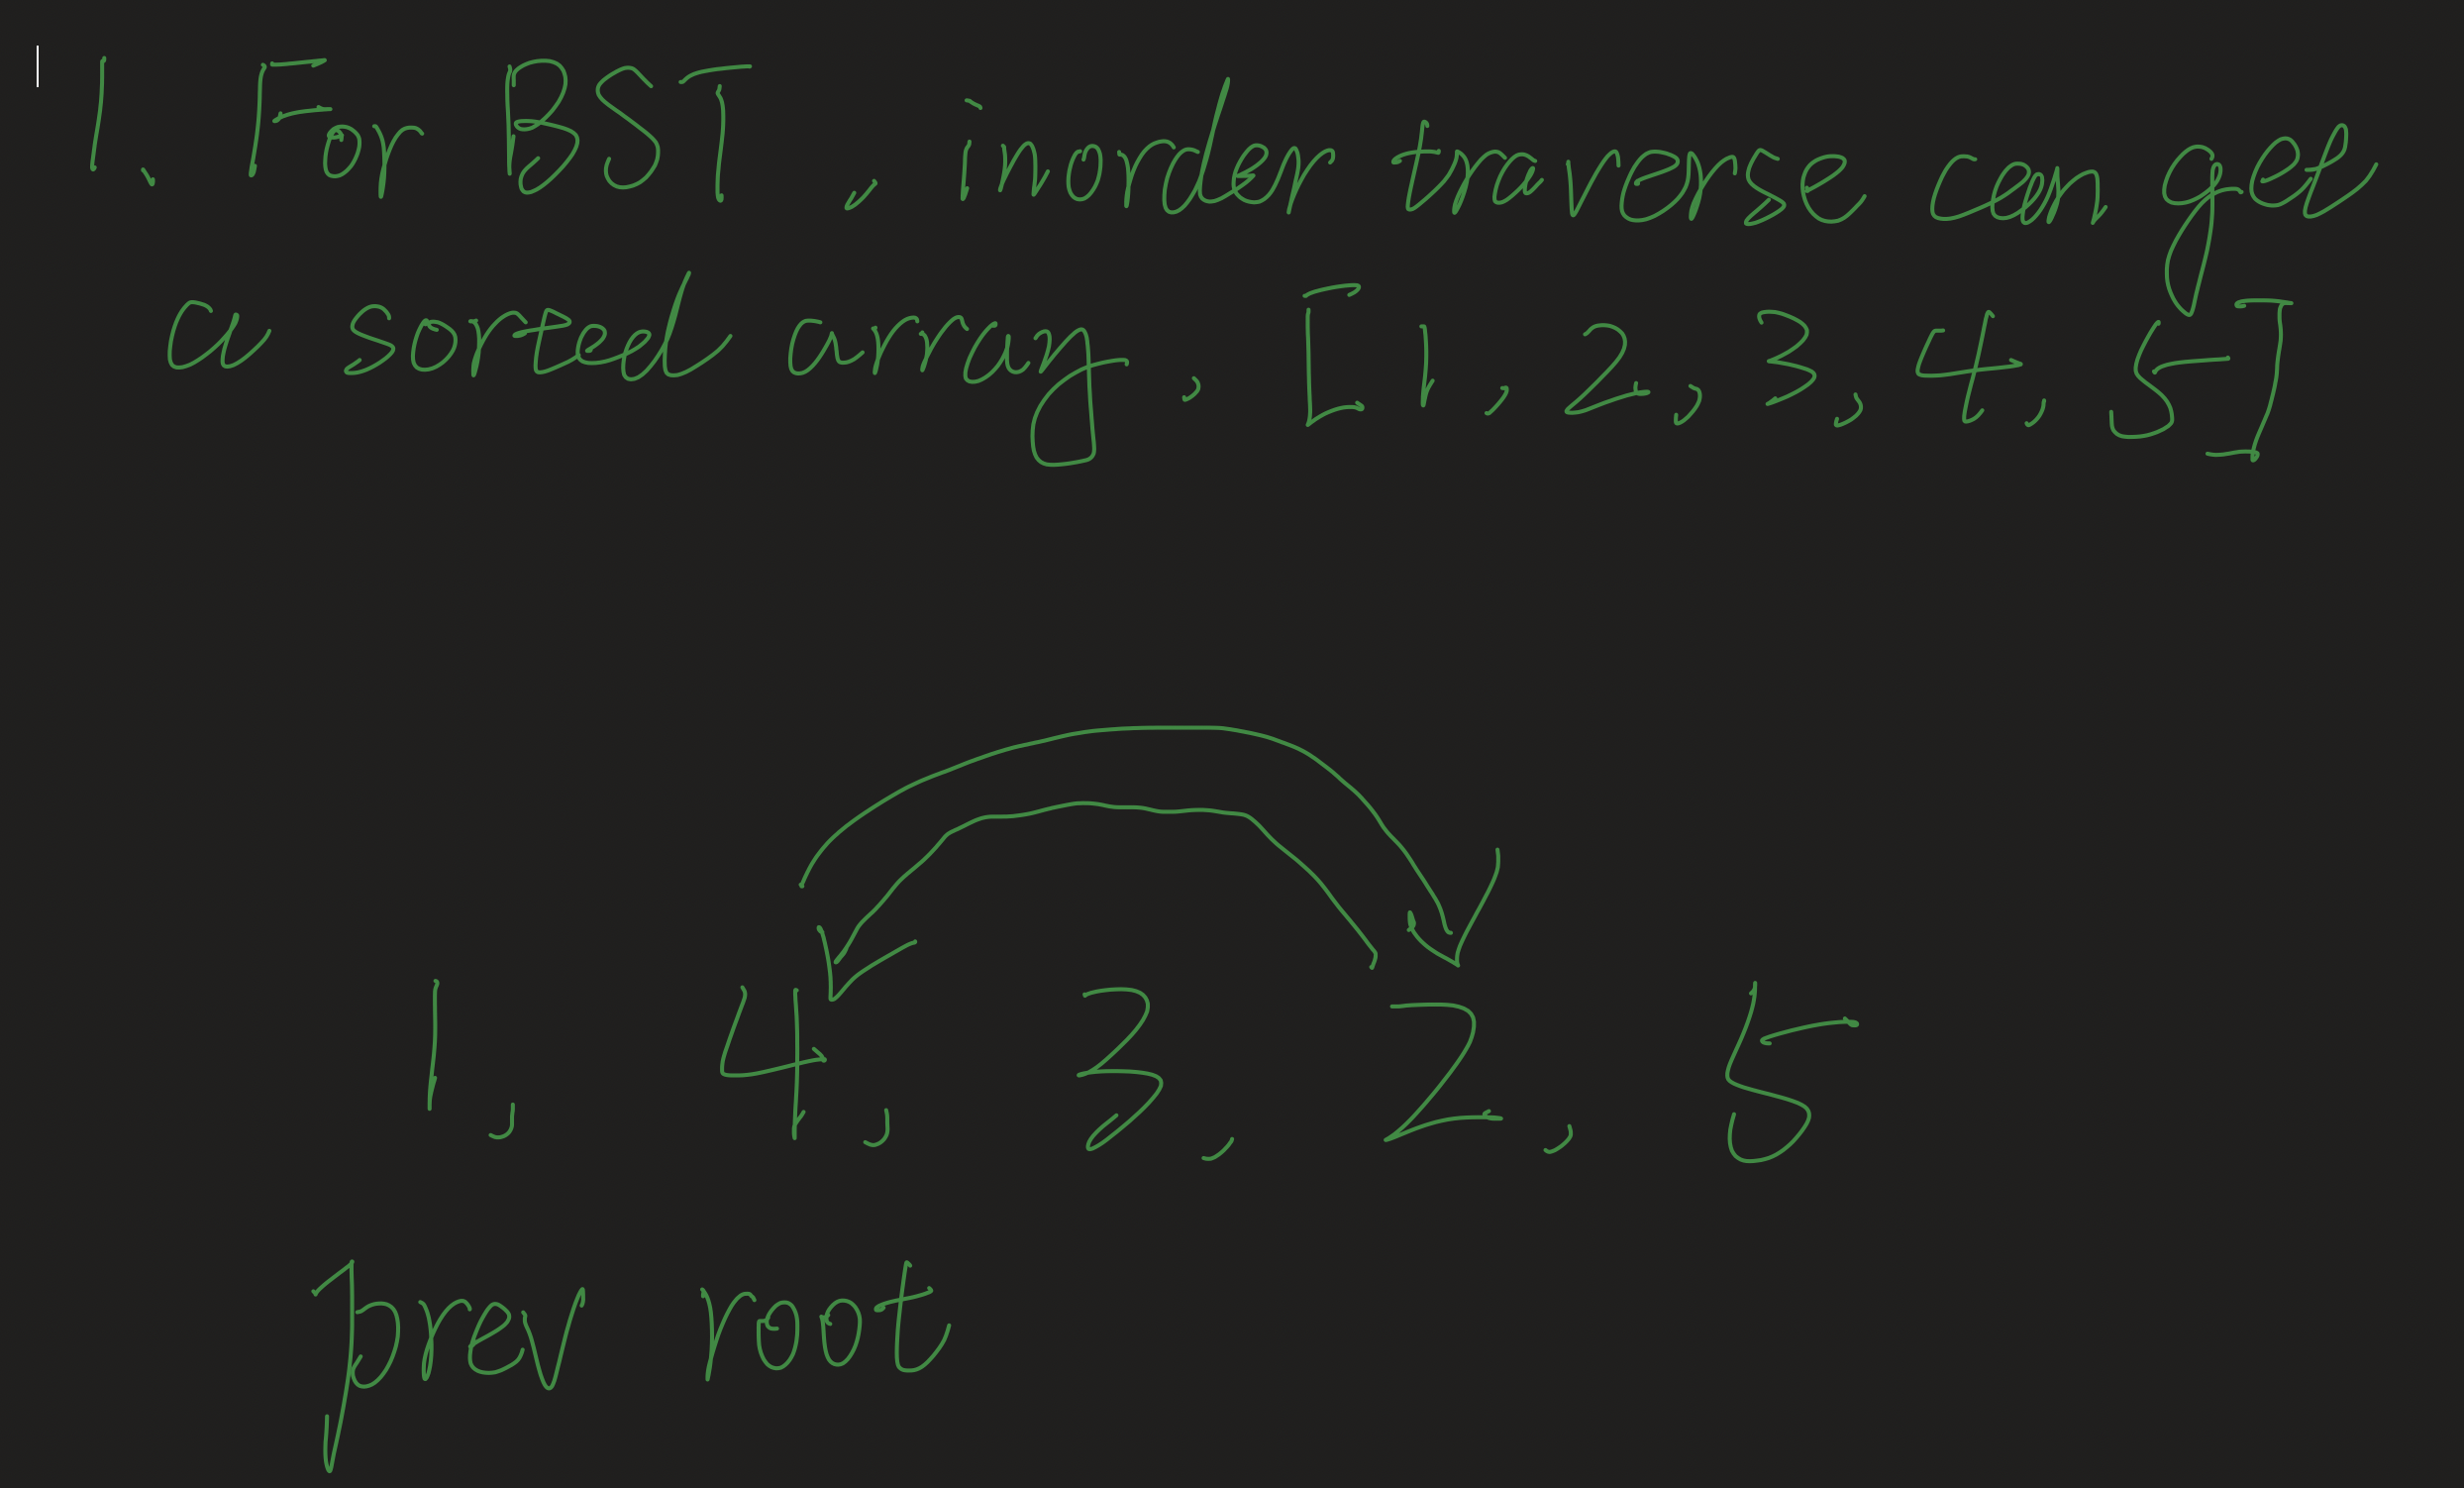 1. For BST, inorder tranverse can get
a sorted array, [1, 2, 3, 4, 5]
1, 4, 3, 2, 5
prev root